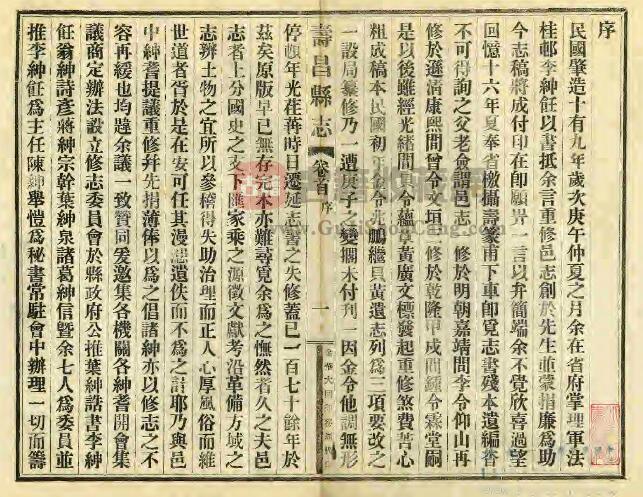 序
民國肇造十有九年歲次庚午仲夏之月余在省府掌理軍法
桂邨李紳飪以書抵余言重修邑志創於先生並蒙指廉為助
今志稿將成付印在即願畀一言以弁簡端余不覺欣喜過望
回憶十六年夏奉省檄攝壽篆甫下車即覓志書殘本遺編杳
不可得詢之父老僉謂邑志一修於明朝嘉靖間李令仰山再
修於遜清康熙間曾令文垣一修於乾隆甲戌間鍾令霖堂嗣
是以後雖經光緒間令蘊章黃廣文標發起重修煞費苦心
粗成稿本民國初年金令兆鵬繼黃遺志列為三項要改之
一設局纂修乃一遭庚子之變擱未付刊一因金令他調無形
壽昌縣志 卷首 序 一
停頓年光荏苒時日遷延志書之失修蓋已一百七十餘年於
茲矣原版早已無存完本亦難尋覓余為之憮然者久之夫邑
志者上分國史之支下匯家乘之源徵文獻考沿革備方域之
志辨土物之宜所以參稽得失助治理而正人心厚風俗而維
世道者胥於是在安可任其漫漶遺佚而不為之計耶乃與邑
中紳耆提議重修并先捐薄俸以為之倡諸紳亦以修志之不
容再緩也均韙余議一致贊同爰邀集各機關各紳耆開會集
議商定辦法設立修志委員會於縣政府公推葉紳誥書李紳
飪翁紳詩彥蔣紳宗幹葉紳泉諸葛紳信暨余七人為委員並
推李紳飪為主任陳紳舉愷為秘書常駐會中辦理一切而籌